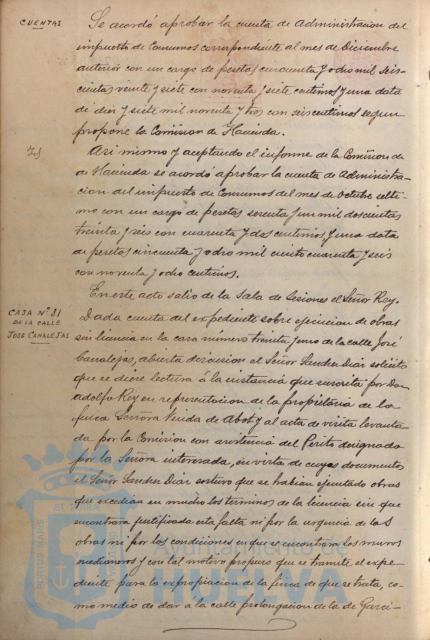 CUENTAS
Se acordó aprobar la cuenta de Administracion del
impuesto de Consumos correspondiente al mes de Diciembre
anterior con un cargo de pesetas cincuenta y ocho mil seis-
cientas veinte y siete con noventa y siete centimos y una data
de diez y siete mil noventa y tres con seis centimos segun
propone la Comision de Hacienda.
Id
Asi mismo y aceptando el informe de la Comision de
de Hacienda se acordó aprobar la cuenta de Administra-
cion del impuesto de Consumos del mes de Octubre ulti-
mo con un cargo de pesetas sesenta y un mil doscientas
treinta y seis con cuarenta y dos centimos y una data
de pesetas cincuenta y ocho mil ciento cuarenta y seis
con noventa y ocho centimos.
En este acto salió de la Sala de Sesiones el Señor Rey.
CASA Nº 31
DE LA CALLE
JOSE CANALEJAS
Dada cuenta del expediente sobre ejecucion de obras
sin licencia en la casa número treinta y uno de la calle José
Canalejas, abierta discusion el Señor Sanchez Diaz solicitó
que se diese lectura á la instancia que suscribe por Don
Adolfo Rey en representacion de la propietaria de la
finca Señora Viuda de Abot y al acta de visita levanta-
da por la Comision con asistencia del Perito designado
por la Señora interesada, en vista de cuyos documentos
el Señor Sanchez Diaz sostuvo que se habian ejecutado obras
que excedian en mucho los terminos de la licencia sin que
encontrara justificada esta falta ni por la urgencia de las
obras ni por las condiciones en que se encontraban los muros
medianeros y con tal motivo propuso que se tramite el expe-
diente para la expropiacion de la finca de que se trata, co-
mo medio de dar á la calle prolongacion de la de Garci-
Ayuntamiento de
HUELVA